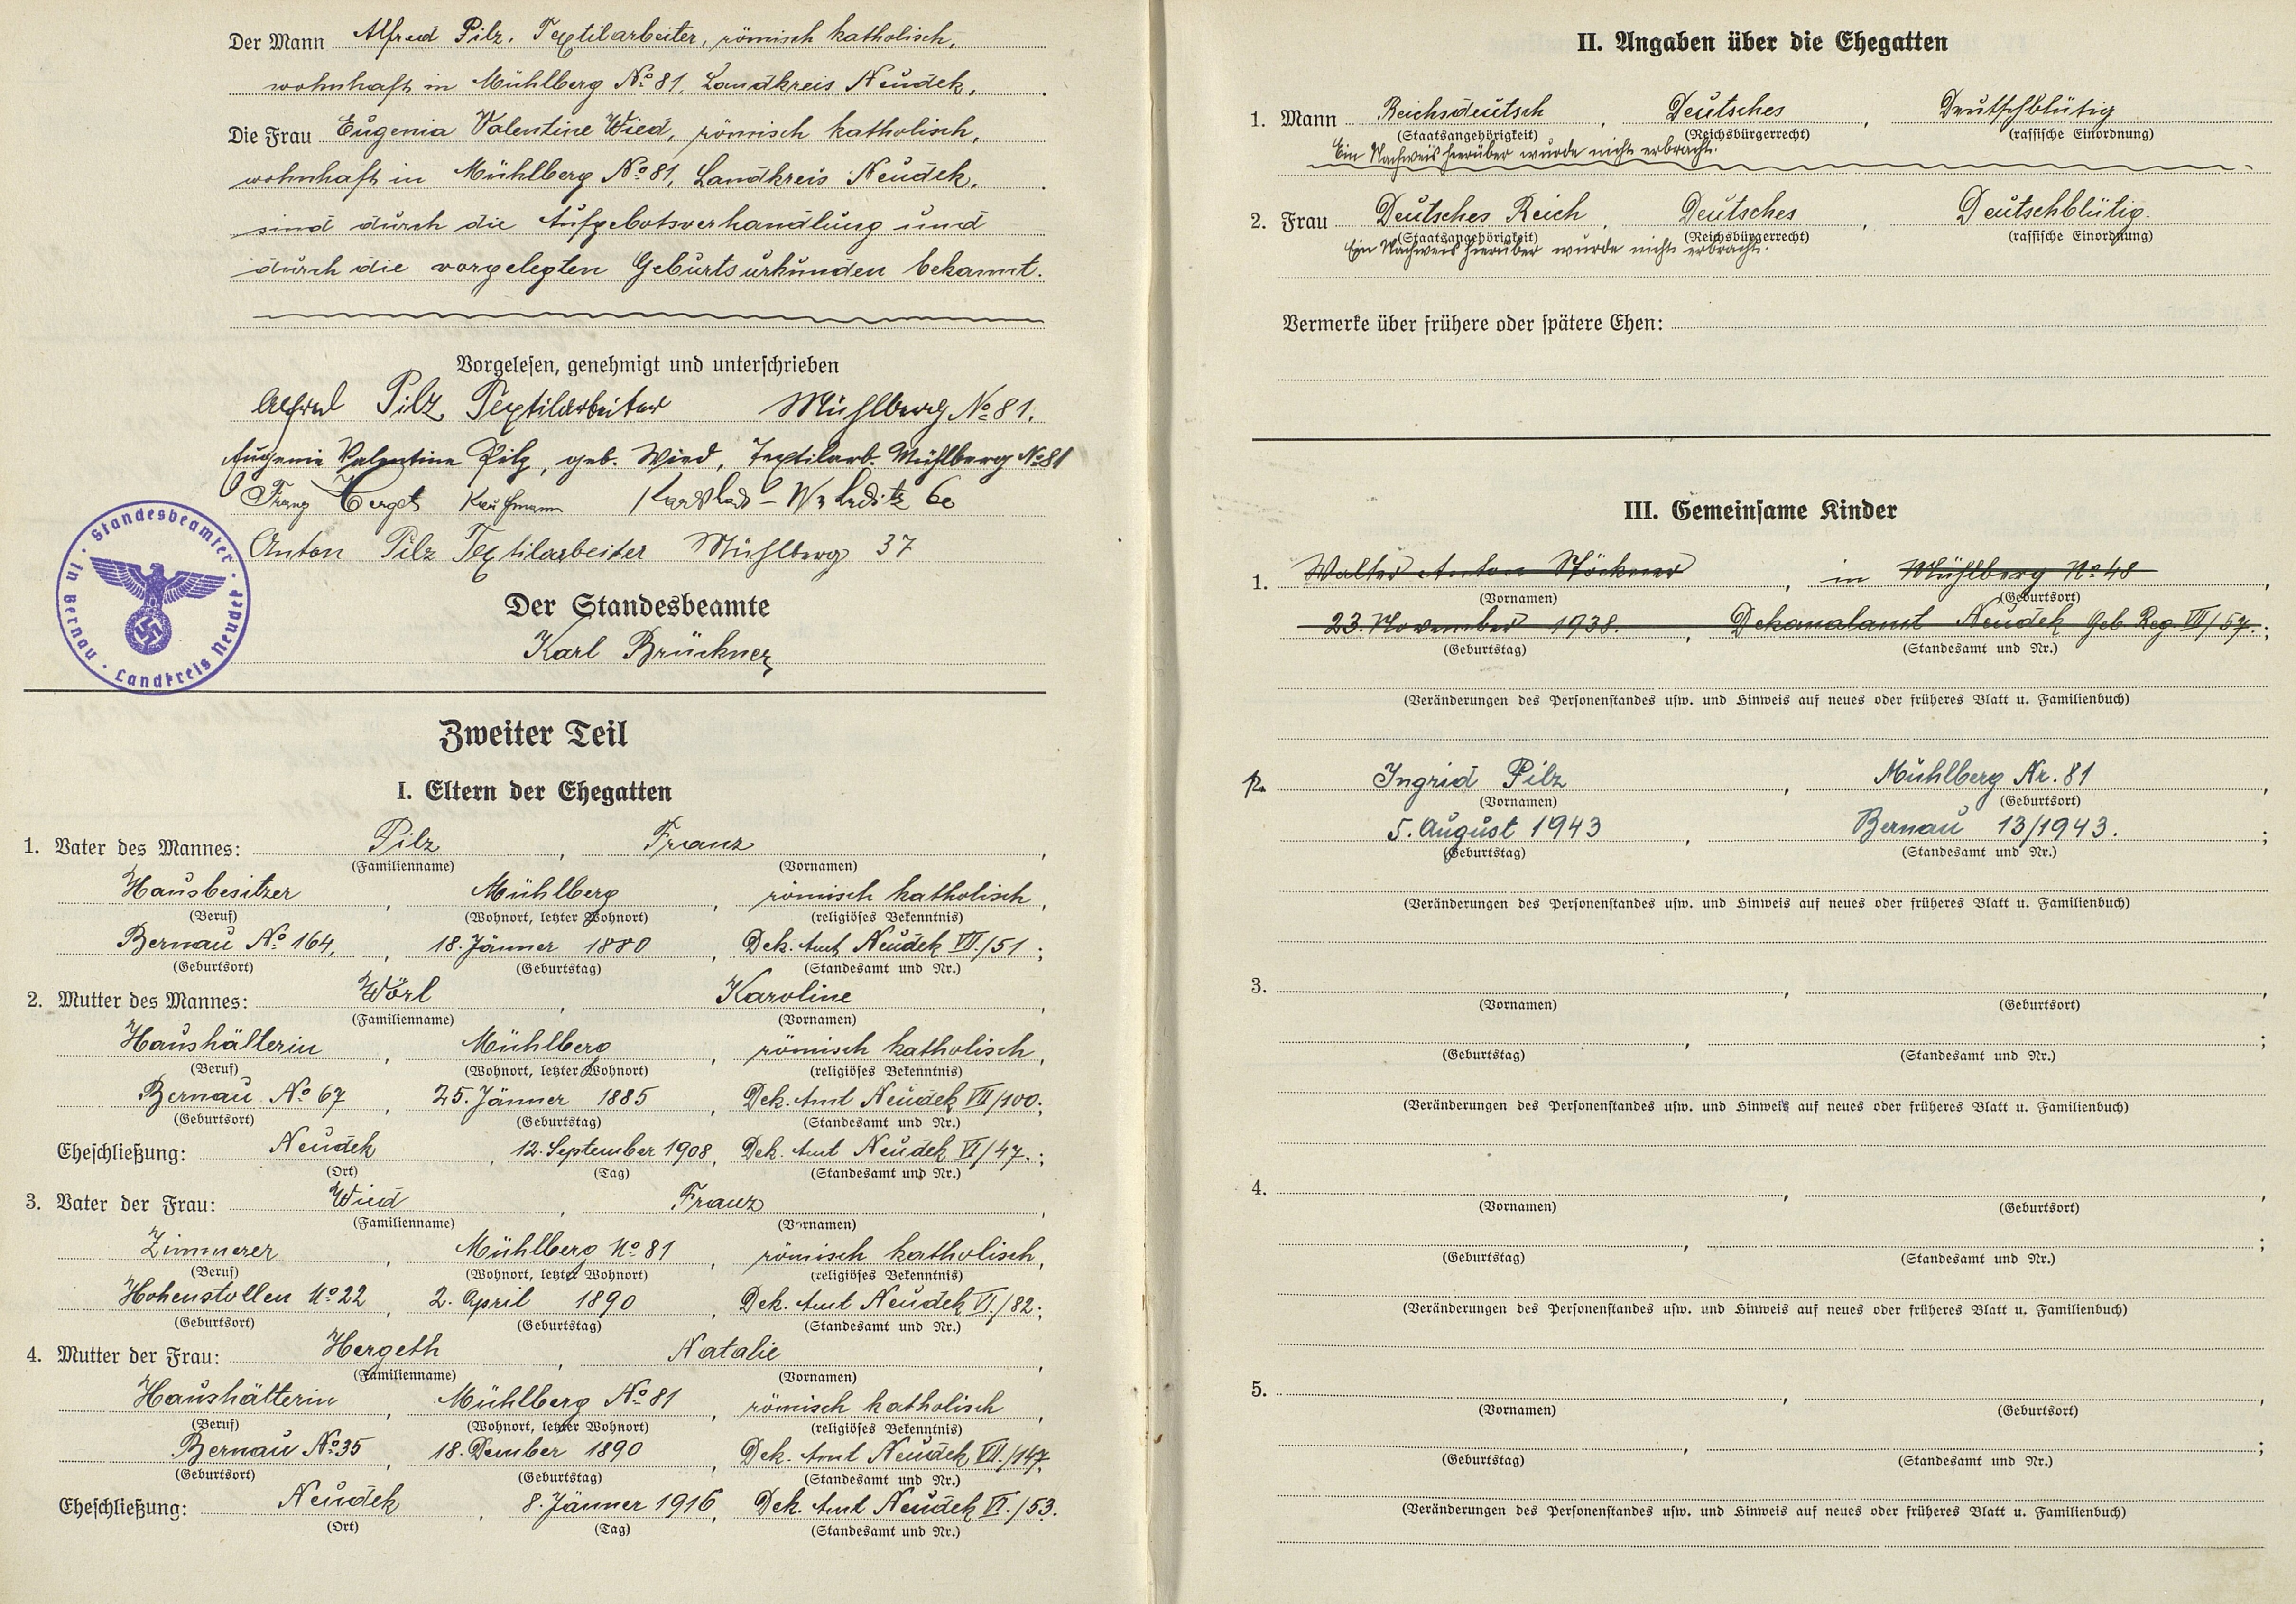 Der Mann Alfred Pilz, Textilarbeiter, römisch katholisch,
wohnhaft in Mühlberg No 81, Landkreis Neudek.
Die Frau Eugenia Valentine Wied, römisch katholisch,
wohnhaft in Mühlberg No 81, Landkreis Neudek,
sind durch die Aufgebotsverhandlung und
durch die vorgelegten Geburtsurkunden bekannt.
Vorgelesen, genehmigt und unterschrieben
Alfred Pilz Textilarbeiter Mühlberg No 81.
Eugenie Valentine Pilz, geb. Wied, Textilarb. Mühlberg No 81
Franz Kaufmann
Anton Pilz Textilarbeiter Mühlberg 37
Standesbeamter in Bernau · Landkreis Neudek ·
Der Standesbeamte
Karl Brückner
Zweiter Teil
I. Eltern der Ehegatten
1. Vater des Mannes: Pilz, Franz,
(Familienname) (Vornamen)
Hausbesitzer, Mühlberg, römisch katholisch,
(Beruf) (Wohnort, letzter Wohnort) (religiöses Bekenntnis)
Bernau No 164, 18. Jänner 1880, Dek. Amt Neudek VII./51;
(Geburtsort) (Geburtstag) (Standesamt und Nr.)
2. Mutter des Mannes: Wörl, Karoline
(Familienname) (Vornamen)
Haushälterin, Mühlberg, römisch katholisch,
(Beruf) (Wohnort, letzter Wohnort) (religiöses Bekenntnis)
Bernau No 67, 25. Jänner 1885, Dek. Amt Neudek VII/100;
(Geburtsort) (Geburtstag) (Standesamt und Nr.)
Eheschließung: Neudek, 12. September 1908, Dek. Amt Neudek VI/47.;
(Ort) (Tag) (Standesamt und Nr.)
3. Vater der Frau: Wied, Franz,
(Familienname) (Vornamen)
Zimmerer, Mühlberg No 81, römisch katholisch,
(Beruf) (Wohnort, letzter Wohnort) (religiöses Bekenntnis)
Hohenstollen No 22, 2. April 1890, Dek. Amt Neudek VI./82;
(Geburtsort) (Geburtstag) (Standesamt und Nr.)
4. Mutter der Frau: Hergeth, Natalie,
(Familienname) (Vornamen)
Haushälterin, Mühlberg No 81, römisch katholisch,
(Beruf) (Wohnort, letzter Wohnort) (religiöses Bekenntnis)
Bernau No 35, 18. Dember 1890, Dek. Amt Neudek VII./147;
(Geburtsort) (Geburtstag) (Standesamt und Nr.)
Eheschließung: Neudek, 8. Jänner 1916, Dek. Amt Neudek VI./53.
(Ort) (Tag) (Standesamt und Nr.)
II. Angaben über die Ehegatten
1. Mann Reichsdeutsch, Deutsches, Deutschblütig
(Staatsangehörigkeit) (Reichsbürgerrecht) (rassische Einordnung)
Ein Nachweis hierüber wurde nicht erbracht.
2. Frau Deutsches Reich, Deutsches, Deutschblütig.
(Staatsangehörigkeit) (Reichsbürgerrecht) (rassische Einordnung)
Ein Nachweis hierüber wurde nicht erbracht.
Vermerke über frühere oder spätere Ehen:
III. Gemeinsame Kinder
1. Walter Anton Stöckner, in Mühlberg No 48,
(Vornamen) (Geburtsort)
23. November 1938., Dekanalamt Neudek Geb. Reg. VII/57.;
(Geburtstag) (Standesamt und Nr.)
(Veränderungen des Personenstandes usw. und Hinweis auf neues oder früheres Blatt u. Familienbuch)
2. Ingrid Pilz, Mühlberg Nr. 81,
(Vornamen) (Geburtsort)
5. August 1943, Bernau 13/1943.;
(Geburtstag) (Standesamt und Nr.)
(Veränderungen des Personenstandes usw. und Hinweis auf neues oder früheres Blatt u. Familienbuch)
3. , ,
(Vornamen) (Geburtsort)
, ;
(Geburtstag) (Standesamt und Nr.)
(Veränderungen des Personenstandes usw. und Hinweis auf neues oder früheres Blatt u. Familienbuch)
4. , ,
(Vornamen) (Geburtsort)
, ;
(Geburtstag) (Standesamt und Nr.)
(Veränderungen des Personenstandes usw. und Hinweis auf neues oder früheres Blatt u. Familienbuch)
5. , ,
(Vornamen) (Geburtsort)
, ;
(Geburtstag) (Standesamt und Nr.)
(Veränderungen des Personenstandes usw. und Hinweis auf neues oder früheres Blatt u. Familienbuch)